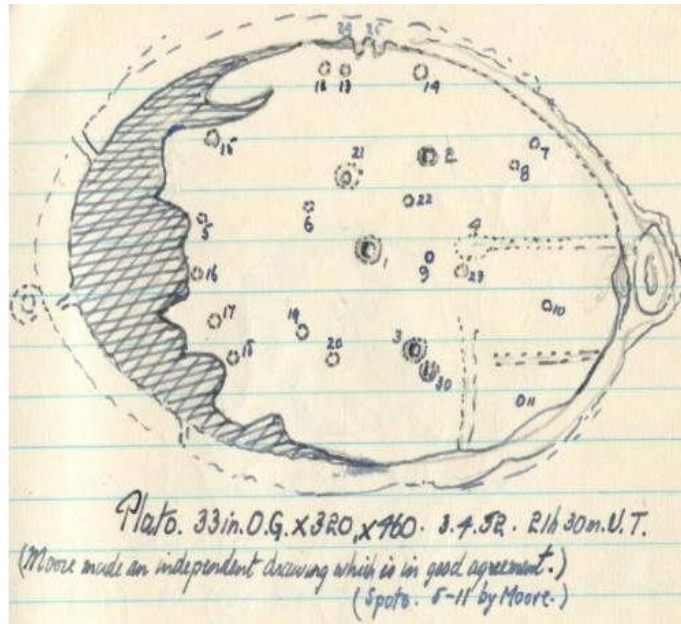 24 25
12 13 14
15 21 2 7
8
22
5 6 4
1 9 23
16
10
17 19
18 20 3
30
11
Plato. 33in.O.G. x320, x460. 3.4.52. 21h 30m. U.T.
(Moore made an independent drawing which is in good agreement.)
(Spots. 5-11 by Moore.)